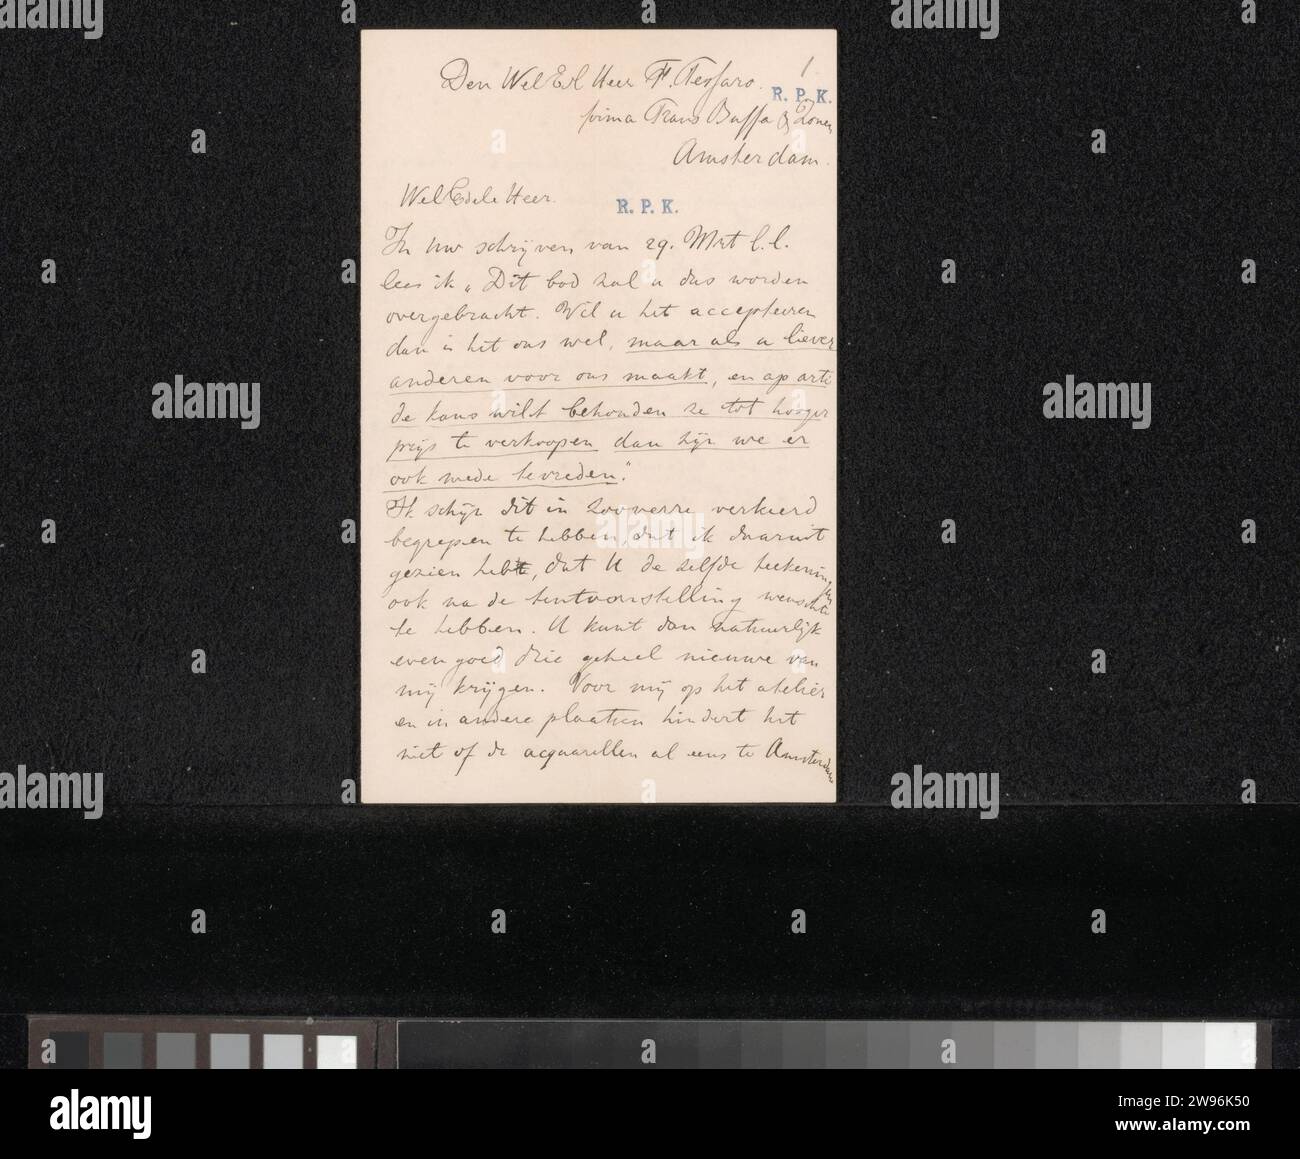 1
Den Wel Ed Heer F. Tessaro.
R. P. K.
firma Frans Buffa & Zonen
Amsterdam.
Wel Edele Heer.
R. P. K.
In uw schrijven van 29. Mrt l.l.
lees ik „Dit bod zal u dus worden
overgebracht. Wil u het accepteeren
dan is het ons wel, maar als u liever
anderen voor ons maakt, en op arti
de kans wilt behouden ze tot hooger
prijs te verkoopen dan zijn we er
ook mede tevreden."
Ik schijn dit in zooverre verkeerd
begrepen te hebben, dat ik daaruit
gezien heb, dat U de zelfde teekeningen
ook na de tentoonstelling wenschte
te hebben. U kunt dan natuurlijk
even goed drie geheel nieuwe van
mij krijgen. Voor mij op het atelier
en in andere plaatsen hindert het
niet of de acquarellen al eens te Amsterdam
alamy
Image ID: 2W96K50
www.alamy.com